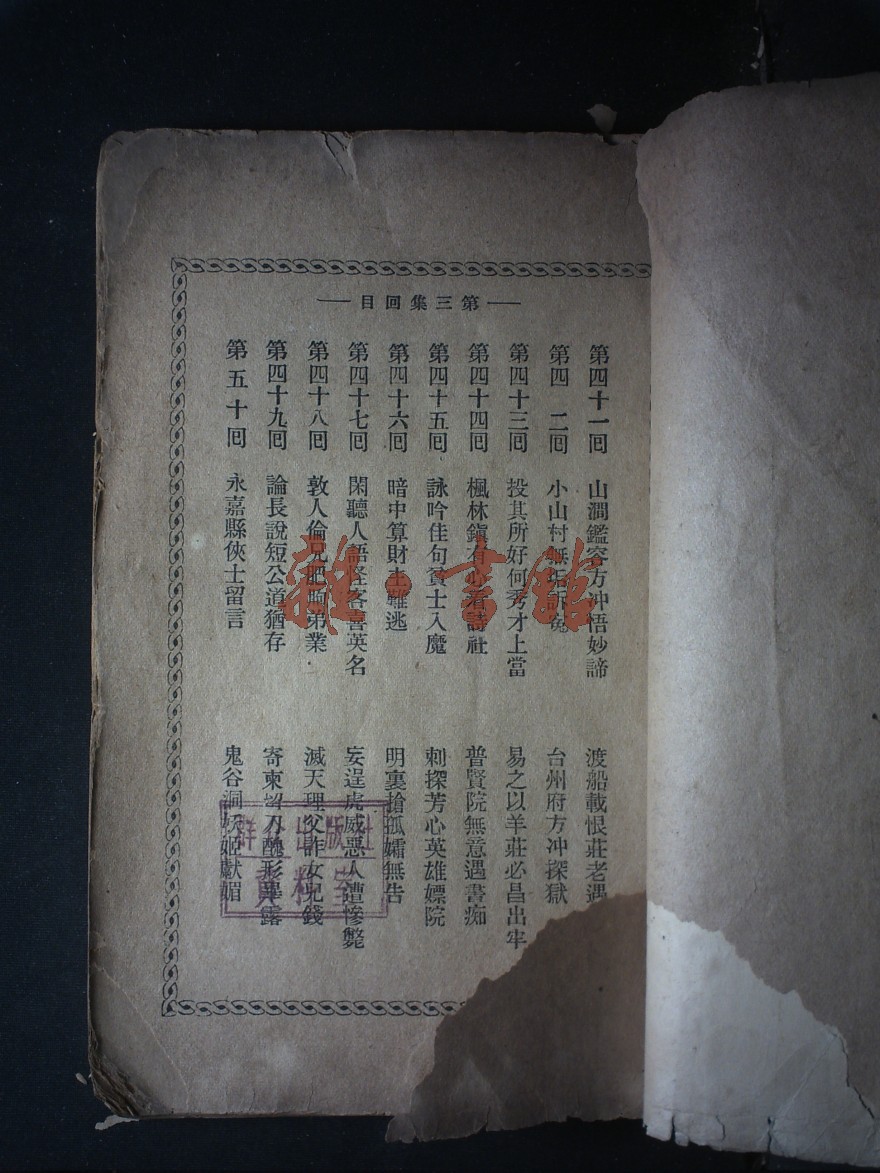 第三集回目
第四十一回 山澗鑑容方冲悟妙諦 渡船載恨莊老遇
第四 二回 小山村無垢訴寃 台州府方冲探獄
第四十三回 投其所好何秀才上當 易之以羊莊必昌出牢
第四十四回 楓林鎭有心 詩社 普賢院無意遇書痴
第四十五回 詠吟佳句貧士入魔 刺探芳心英雄嫖院
第四十六回 暗中算財主難逃 明裏搶孤孀無告
第四十七回 閑聽人語怪客喜英名 妄逞虎威惡人遭慘斃
第四十八回 敦人倫兄肥 弟業 滅天理父詐女兒錢
第四十九回 論長說短公道猶存 寄柬留刀醜形畢露
第五十回 永嘉縣俠士留言 鬼谷洞妖姬獻媚
雜·書館
群众出版社
資料室